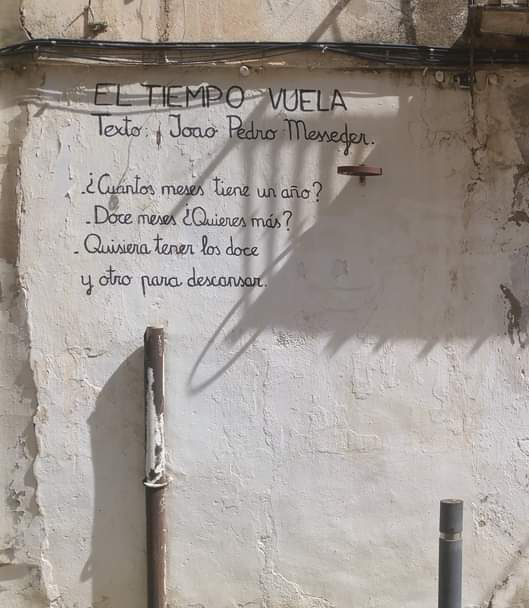 EL TIEMPO VUELA
Texto: Joao Pedro Messeder.
-¿Cuántos meses tiene un año?
-Doce meses ¿Quieres más?
-Quisiera tener los doce
y otro para descansar.